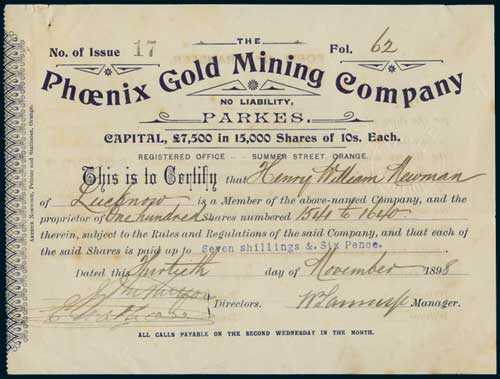 THE
No. of Issue 17
Fol. 62
Phœnix Gold Mining Company
NO LIABILITY,
PARKES.
CAPITAL, £7,500 in 15,000 Shares of 10s. Each.
REGISTERED OFFICE -- SUMMER STREET, ORANGE.
This is to Certify that Henry William Newman
of Lucknow is a Member of the above-named Company, and the
proprietor of One hundred shares numbered 1541 to 1640
therein, subject to the Rules and Regulations of the said Company, and that each of
the said Shares is paid up to Seven shillings & Six Pence.
Dated this Thirtieth day of November 1898
Directors.
Manager.
ALL CALLS PAYABLE ON THE SECOND WEDNESDAY IN THE MONTH.
Printer and Stationer, Orange.